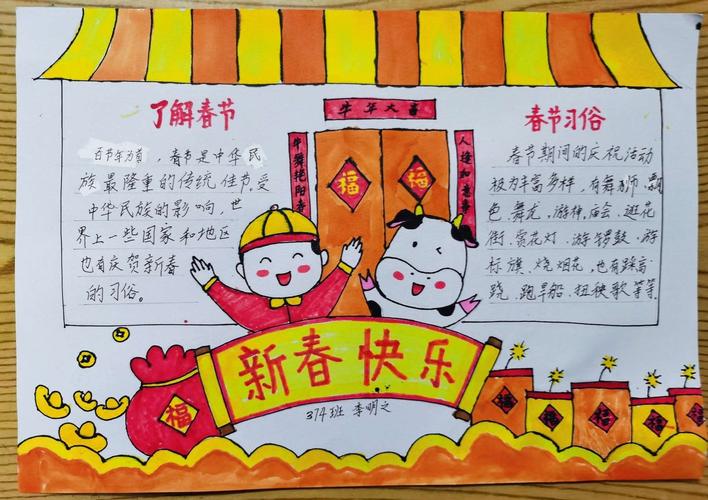 牛年大吉
了解春节
百节年为首，春节是中华民
族最隆重的传统佳节。受
中华民族的影响，世
界上一些国家和地区
也有庆贺新春
的习俗。
牛舞艳阳春
福
福
人逢如意
春节习俗
春节期间的庆祝活动
极为丰富多样，有舞狮、飘
色、舞龙、游神、庙会、逛花
街、赏花灯、游锣鼓、游
标旗、烧烟花，也有踩高
跷、跑旱船、扭秧歌等等。
新春快乐
374班 李明之
福
福
福
福
福
福